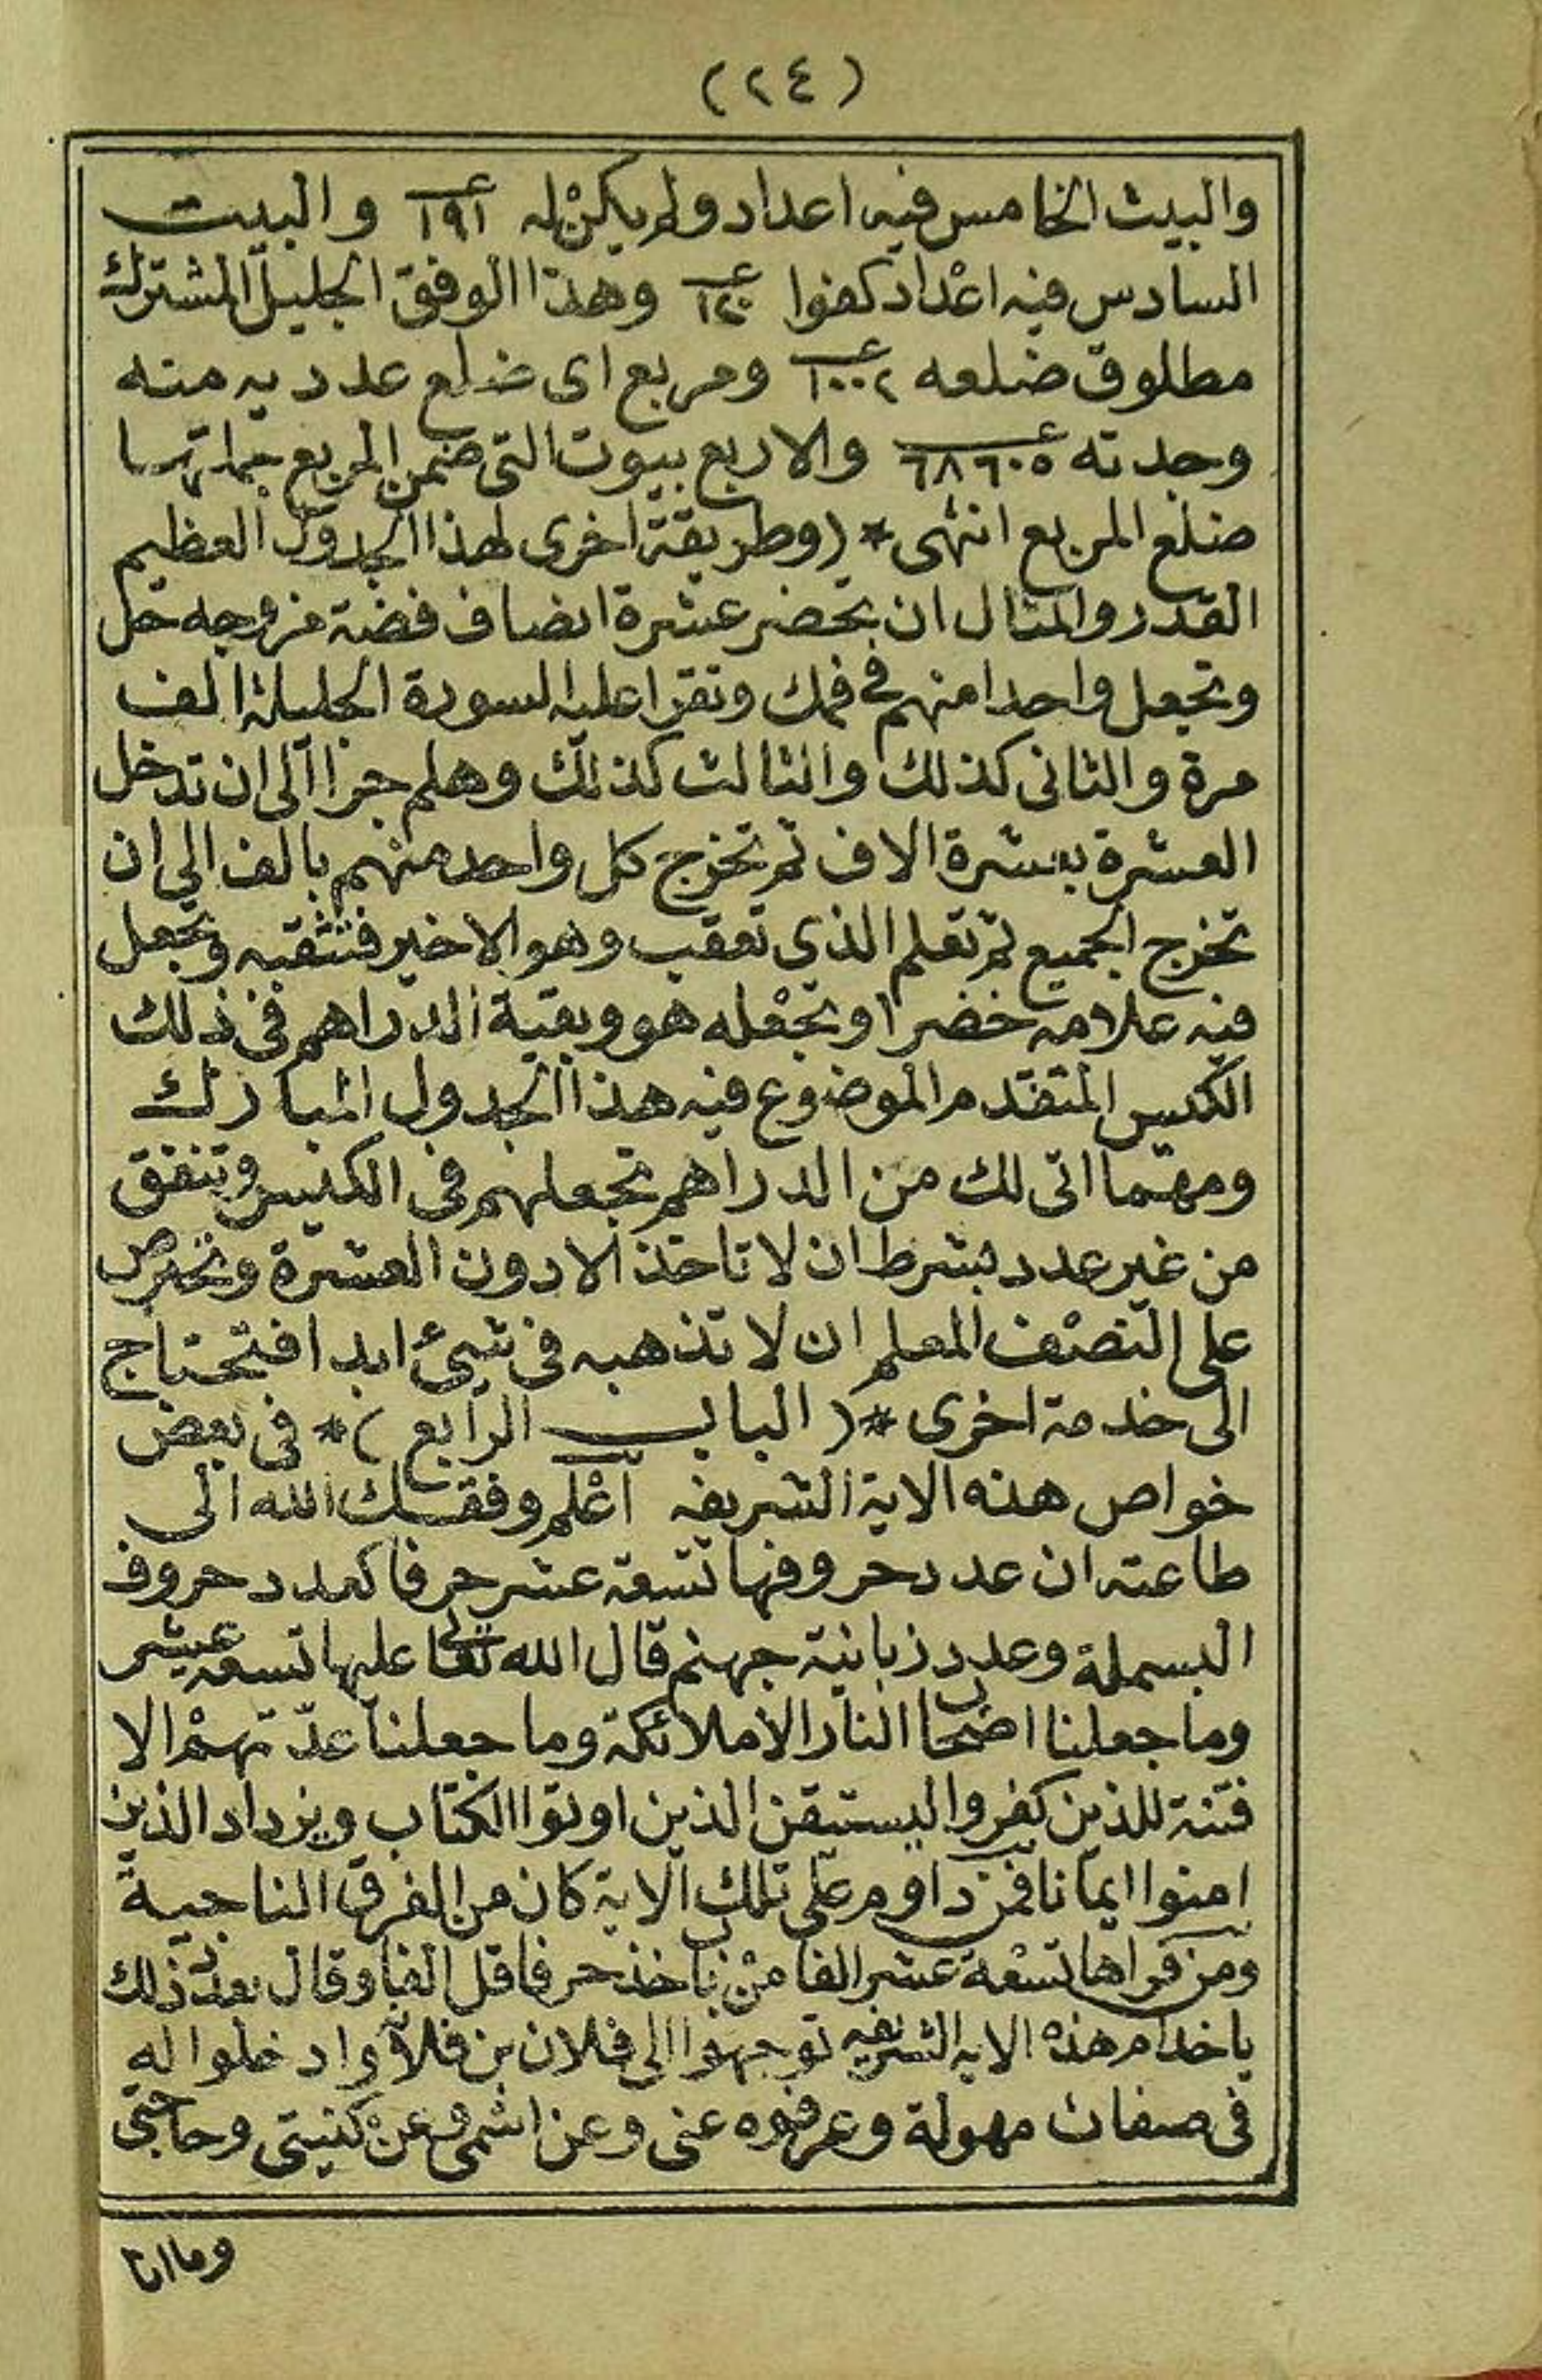 (٢٤)
والبيت الخامس فيه اعداد ولم يكن له ١٩١ والبيت
السادس فيه اعداد كفوا وهذا الوفق الجليل المشترك
مطلوق ضلعه ١٠٠٢ ومربع اى ضلع عددية منه
وجدته ٦٨٦٠٥ والاربع بيوت التى ضمن المربع جملتها
ضلع المربع انتهى * (وطريقة اخرى لهذا الجدول العظيم
القدر والمثال ان تحضر عشرة انصاف فضة من وجه حل
وتجعل واحدا منهم فى فمك وتقرا عليه السورة الجليلة الف
مرة والثانى كذلك والثالث كذلك وهلم جرا الى ان تدخل
العشرة بعشرة الاف ثم تخرج كل واحد منهم بالف الى ان
تخرج الجميع ثم تعلم الذى تعقب وهو الاخير فتثقبه وتجعل
فيه علامة خضرا وتجعله هو وبقية الدراهم فى ذلك
الكيس المتقدم الموضوع فيه هذا الجدول المبارك
ومهما اتى لك من الدراهم تجعلهم فى الكيس وتنفق
من غير عدد بشرط ان لا تاخذ الا دون العشرة وتحرص
على النصف المعلم ان لا تذهبه فى شىء ابدا فتحتاج
الى خدمة اخرى *( الباب الرابع )* فى بعض
خواص هذه الاية الشريفه اعلم وفقك الله الى
طاعته ان عدد حروفها تسعة عشر حرفا كعدد حروف
البسملة وعدد زبانية جهنم قال الله تعالى عليها تسعة عشر
وما جعلنا اصحاب النار الا ملائكة وما جعلنا عدّتهم الا
فتنة للذين كفروا ليستيقن الذين اوتوا الكتاب ويزداد الذين
امنوا ايمانا فمن داوم على تلك الاية كان من الفرق الناجية
ومن قراها تسعة عشر الفا من ياخذ حرفا قل الفا وقال بعد ذلك
يا خدام هذه الاية الشريفه توجهوا الى فلان بن فلان وادخلوا له
فى صفات مهولة وعرفوه عنى وعن اسمى وعن كنيتى وحاجتى
وما انا